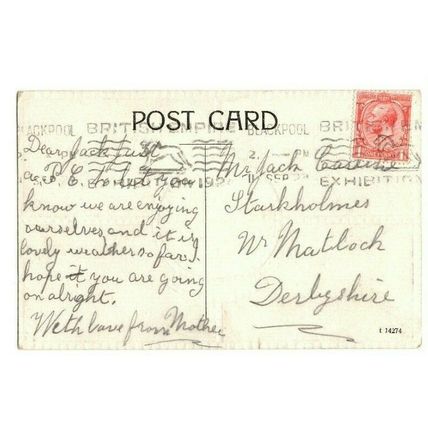 POST CARD
BLACKPOOL
BRITISH EMPIRE
BLACKPOOL
EXHIBITION
Dear Jack just
a P.C. to let you
know we are enjoying
ourselves and it is
lovely weather so far I
hope you are going
on alright.
With love from Mother
Mr Jack
Starkholmes
Nr Matlock
Derbyshire
t 74274